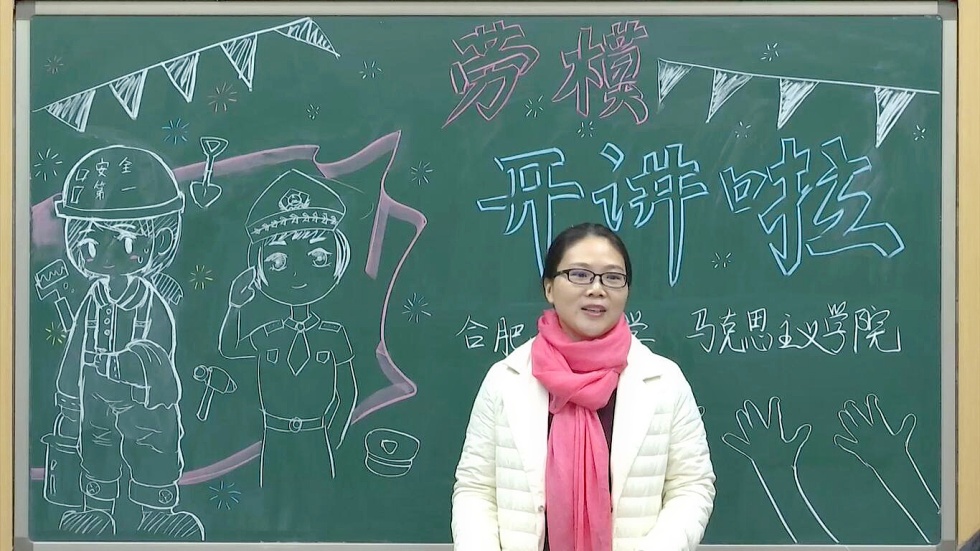 劳模
开讲啦
合肥 学 马克思主义学院
安全
第一